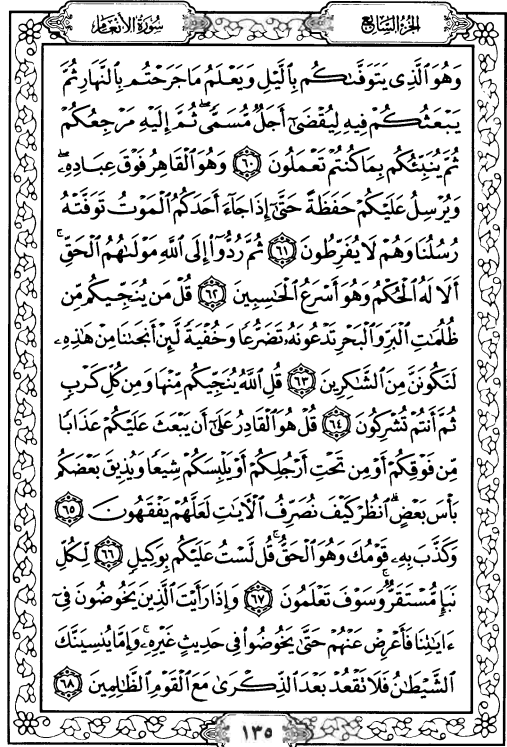 سُورَةُ الأَنْعَام
الجُزْءُ السَّابِع
وَهُوَ ٱلَّذِى يَتَوَفَّىٰكُم بِٱلَّيْلِ وَيَعْلَمُ مَا جَرَحْتُم بِٱلنَّهَارِ ثُمَّ
يَبْعَثُكُمْ فِيهِ لِيُقْضَىٰٓ أَجَلٌ مُّسَمًّى ۖ ثُمَّ إِلَيْهِ مَرْجِعُكُمْ
ثُمَّ يُنَبِّئُكُم بِمَا كُنتُمْ تَعْمَلُونَ ٦٠ وَهُوَ ٱلْقَاهِرُ فَوْقَ عِبَادِهِۦ ۖ
وَيُرْسِلُ عَلَيْكُمْ حَفَظَةً حَتَّىٰٓ إِذَا جَآءَ أَحَدَكُمُ ٱلْمَوْتُ تَوَفَّتْهُ
رُسُلُنَا وَهُمْ لَا يُفَرِّطُونَ ٦١ ثُمَّ رُدُّوٓا۟ إِلَى ٱللَّهِ مَوْلَىٰهُمُ ٱلْحَقِّ ۚ
أَلَا لَهُ ٱلْحُكْمُ وَهُوَ أَسْرَعُ ٱلْحَـٰسِبِينَ ٦٢ قُلْ مَن يُنَجِّيكُم مِّن
ظُلُمَـٰتِ ٱلْبَرِّ وَٱلْبَحْرِ تَدْعُونَهُۥ تَضَرُّعًا وَخُفْيَةً لَّئِنْ أَنجَىٰنَا مِنْ هَـٰذِهِۦ
لَنَكُونَنَّ مِنَ ٱلشَّـٰكِرِينَ ٦٣ قُلِ ٱللَّهُ يُنَجِّيكُم مِّنْهَا وَمِن كُلِّ كَرْبٍ
ثُمَّ أَنتُمْ تُشْرِكُونَ ٦٤ قُلْ هُوَ ٱلْقَادِرُ عَلَىٰٓ أَن يَبْعَثَ عَلَيْكُمْ عَذَابًا
مِّن فَوْقِكُمْ أَوْ مِن تَحْتِ أَرْجُلِكُمْ أَوْ يَلْبِسَكُمْ شِيَعًا وَيُذِيقَ بَعْضَكُم
بَأْسَ بَعْضٍ ۗ ٱنظُرْ كَيْفَ نُصَرِّفُ ٱلْـَٔايَـٰتِ لَعَلَّهُمْ يَفْقَهُونَ ٦٥
وَكَذَّبَ بِهِۦ قَوْمُكَ وَهُوَ ٱلْحَقُّ ۚ قُل لَّسْتُ عَلَيْكُم بِوَكِيلٍ ٦٦ لِّكُلِّ
نَبَإٍ مُّسْتَقَرٌّ ۚ وَسَوْفَ تَعْلَمُونَ ٦٧ وَإِذَا رَأَيْتَ ٱلَّذِينَ يَخُوضُونَ فِىٓ
ءَايَـٰتِنَا فَأَعْرِضْ عَنْهُمْ حَتَّىٰ يَخُوضُوا۟ فِى حَدِيثٍ غَيْرِهِۦ ۚ وَإِمَّا يُنسِيَنَّكَ
ٱلشَّيْطَـٰنُ فَلَا تَقْعُدْ بَعْدَ ٱلذِّكْرَىٰ مَعَ ٱلْقَوْمِ ٱلظَّـٰلِمِينَ ٦٨
١٣٥